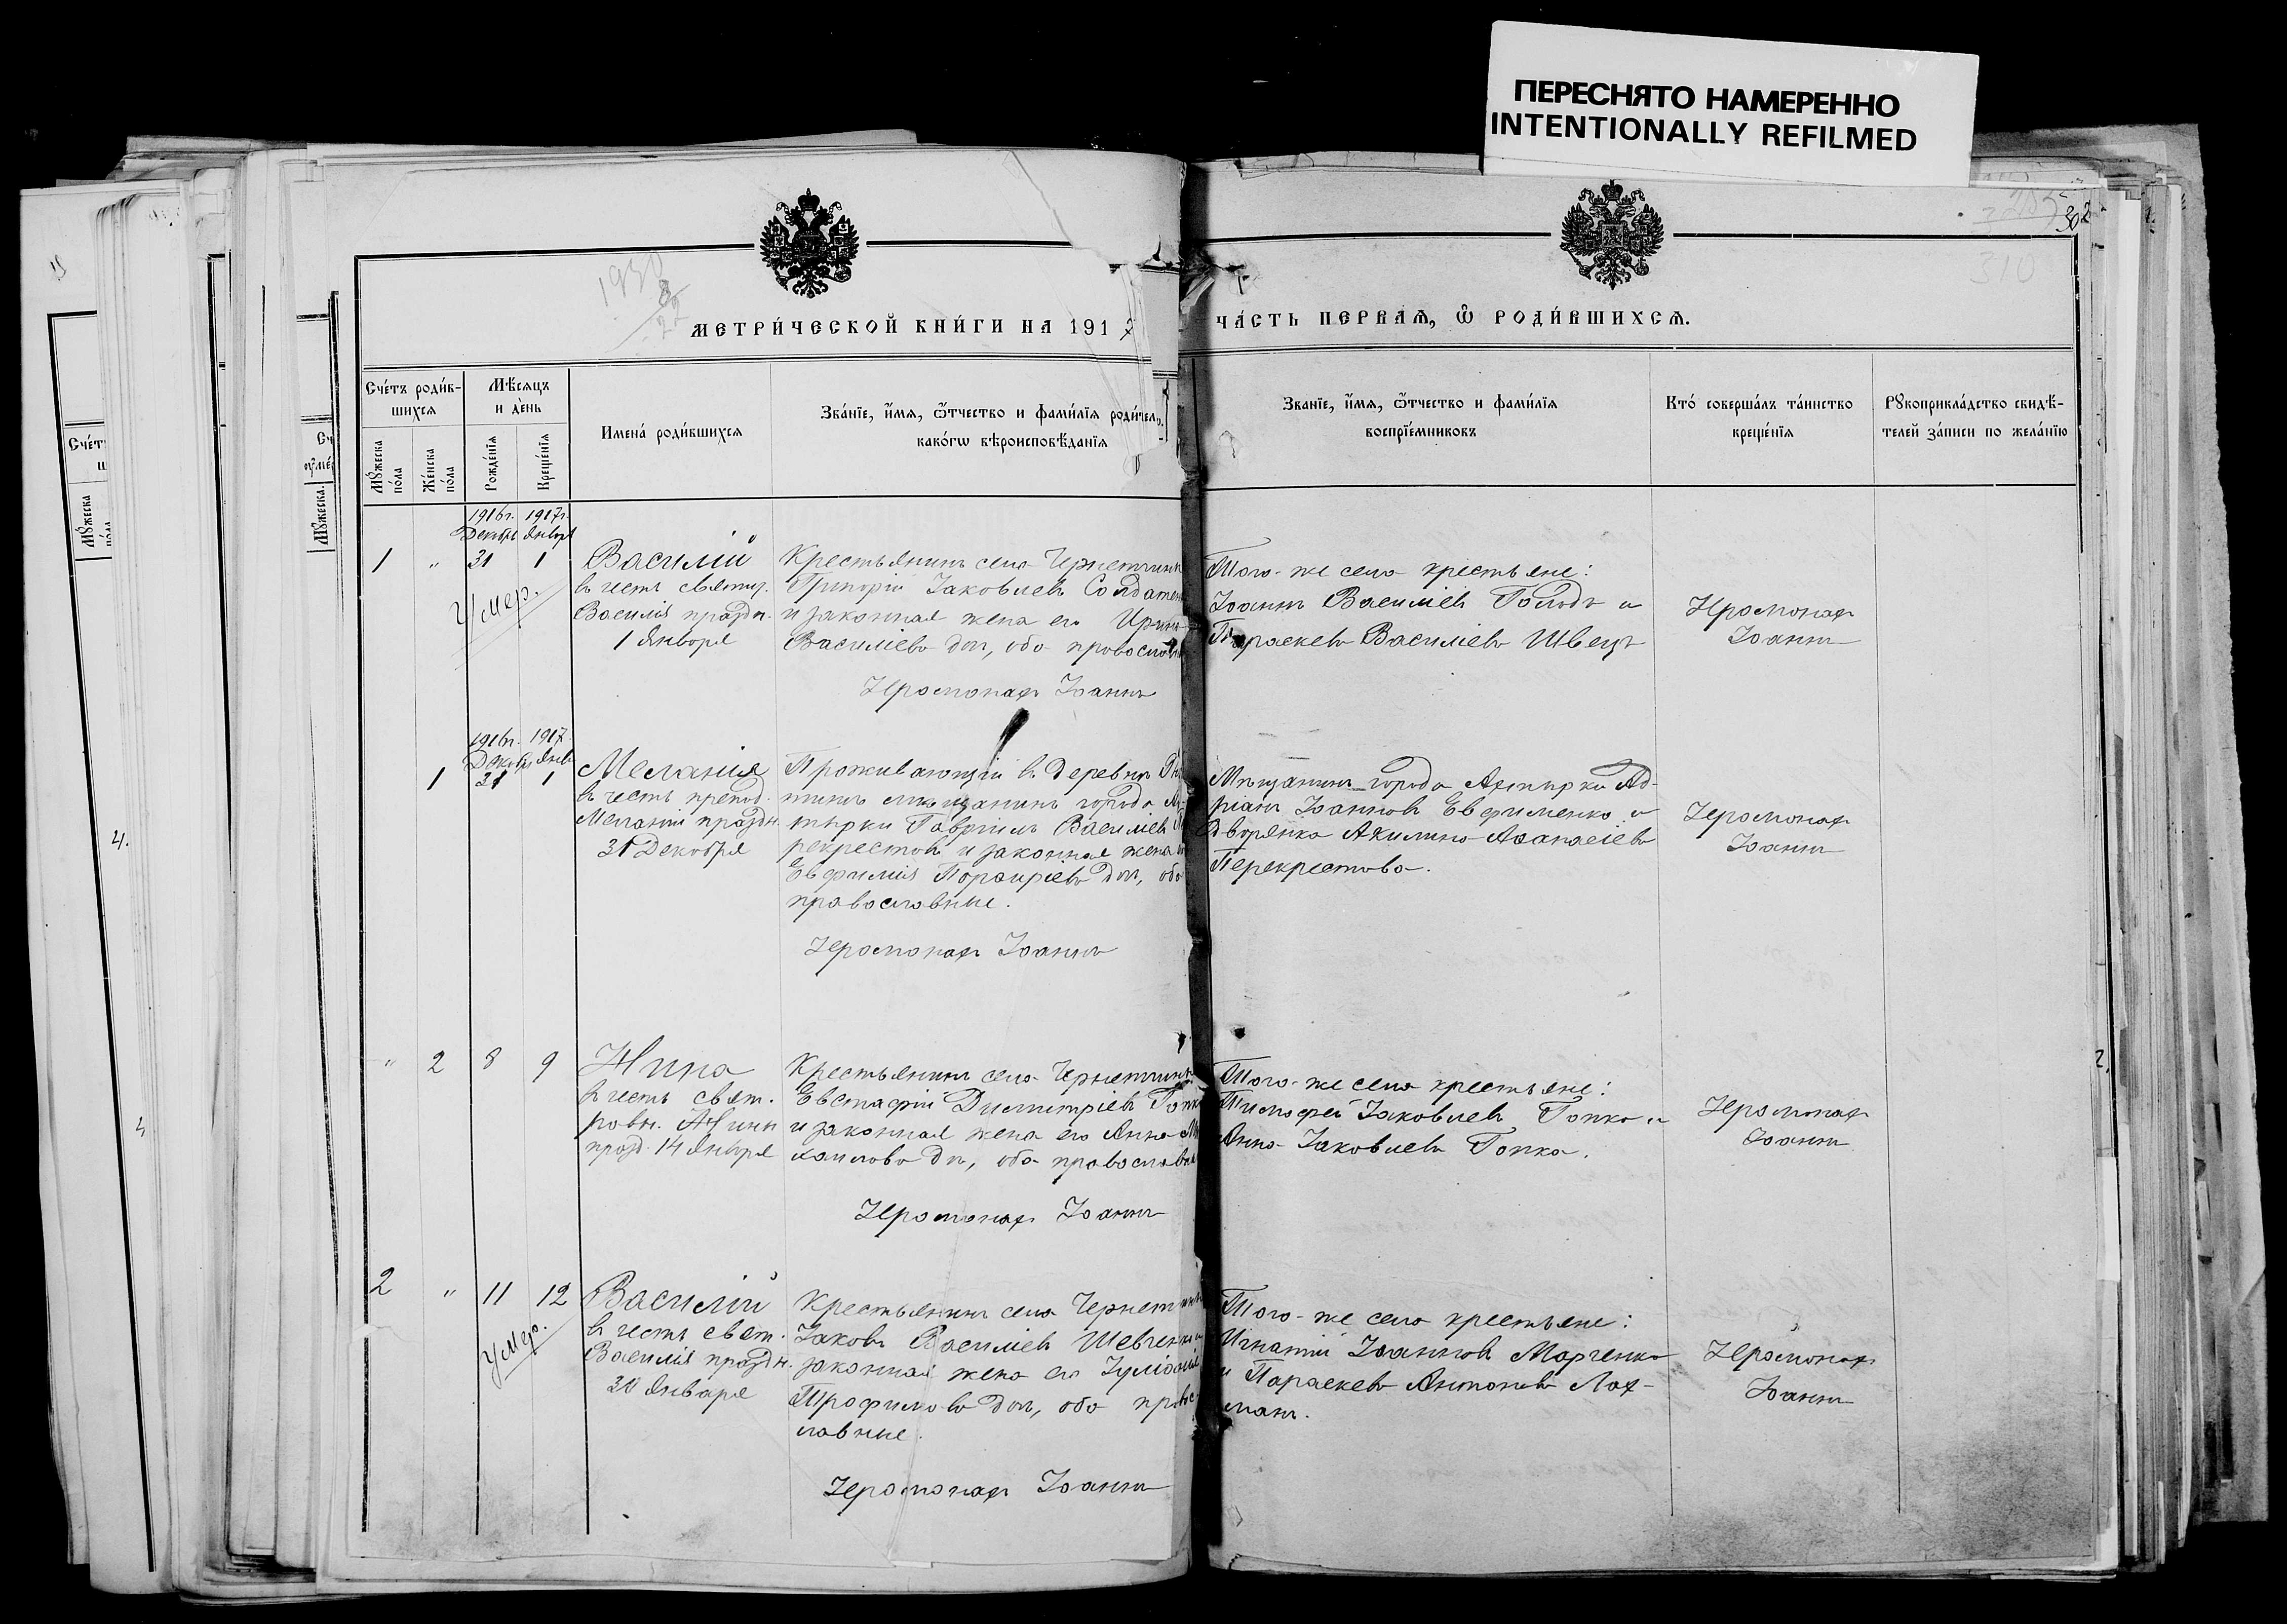 ПЕРЕСНЯТО НАМЕРЕННО
INTENTIONALLY REFILMED
302
310
1930
МЕТРИ́ЧЕСКОЙ КНИ́ГИ НА 1917
ЧА́СТЬ ПЕРВАѦ, Ѽ РОДИ́ВШИХСѦ.
Сче́тъ роди́в-
шихсѧ
Мꙋ́жеска по́ла
Же́нска по́ла
Мѣ́сѧцъ
и де́нь
Рожде́нїѧ
Креще́нїѧ
Имена́ роди́вшихсѧ
Зва́нїе, и́мѧ, ѻ́тчество и фами́лїѧ роди́тел
како́гѡ вѣроисповѣ́данїѧ
Зва́нїе, и́мѧ, ѻ́тчество и фами́лїѧ
воспрїе́мниковъ
Кто́ соверша́лъ та́инство
креще́нїѧ
Рꙋкоприкла́дство свидѣ́-
телей за́писи по жела́нїю
1916г. 1917г.
Декабрь Январь
1 " 31 1
Умер.
Василій
въ честь святит.
Василія праздн.
1 Января
Крестьянинъ села Чернетчины
Григорій Іаковлевъ Солдатен
и законная жена его Ирина
Васильева доп, оба православн
Іеромонахъ Іоаннъ
Того-же села крестьяне:
Іоаннъ Василіевъ Голодъ и
Параскева Василіева Швецъ
Іеромонахъ
Іоаннъ
1916г. 1917
Декабрь Янв
1 31 1
Меланія
въ честь препод.
Меланіи праздн.
31 Декабря
Проживающій въ деревнѣ
мѣщанинъ города Ах-
тырки Гавріилъ Василіевъ
рекрестовъ и законная жена
Евфимія Порфиріева доп, оба
православные.
Іеромонахъ Іоаннъ
Мѣщанинъ города Ахтырки Ад-
ріанъ Іоанновъ Евфименко и
дворянка Акилина Аѳанасіева
Перекрестова.
Іеромонахъ
Іоаннъ
" 2 8 9
Нина
въ честь свят.
равн. Нины
празд. 14 Января
Крестьянинъ села Чернетчины
Евстафій Димитріевъ Гопка
и законная жена его Анна Ми
хаилова доп, оба православн
Іеромонахъ Іоаннъ
Того-же села крестьяне:
Тимофей Іаковлевъ Гопка и
Анна Іаковлева Гопка.
Іеромонахъ
Іоаннъ
2 " 11 12
Умер.
Василій
въ честь свят.
Василія праздн.
30 Января
Крестьянинъ села Чернетчины
Іаковъ Василіевъ Шевченко и
законная жена его Іуліанія
Трофимова доп, оба право
славные.
Іеромонахъ Іоаннъ
Того-же села крестьяне:
Игнатій Іоанновъ Марченко
и Параскева Антонова Лах-
манъ.
Іеромонахъ
Іоаннъ